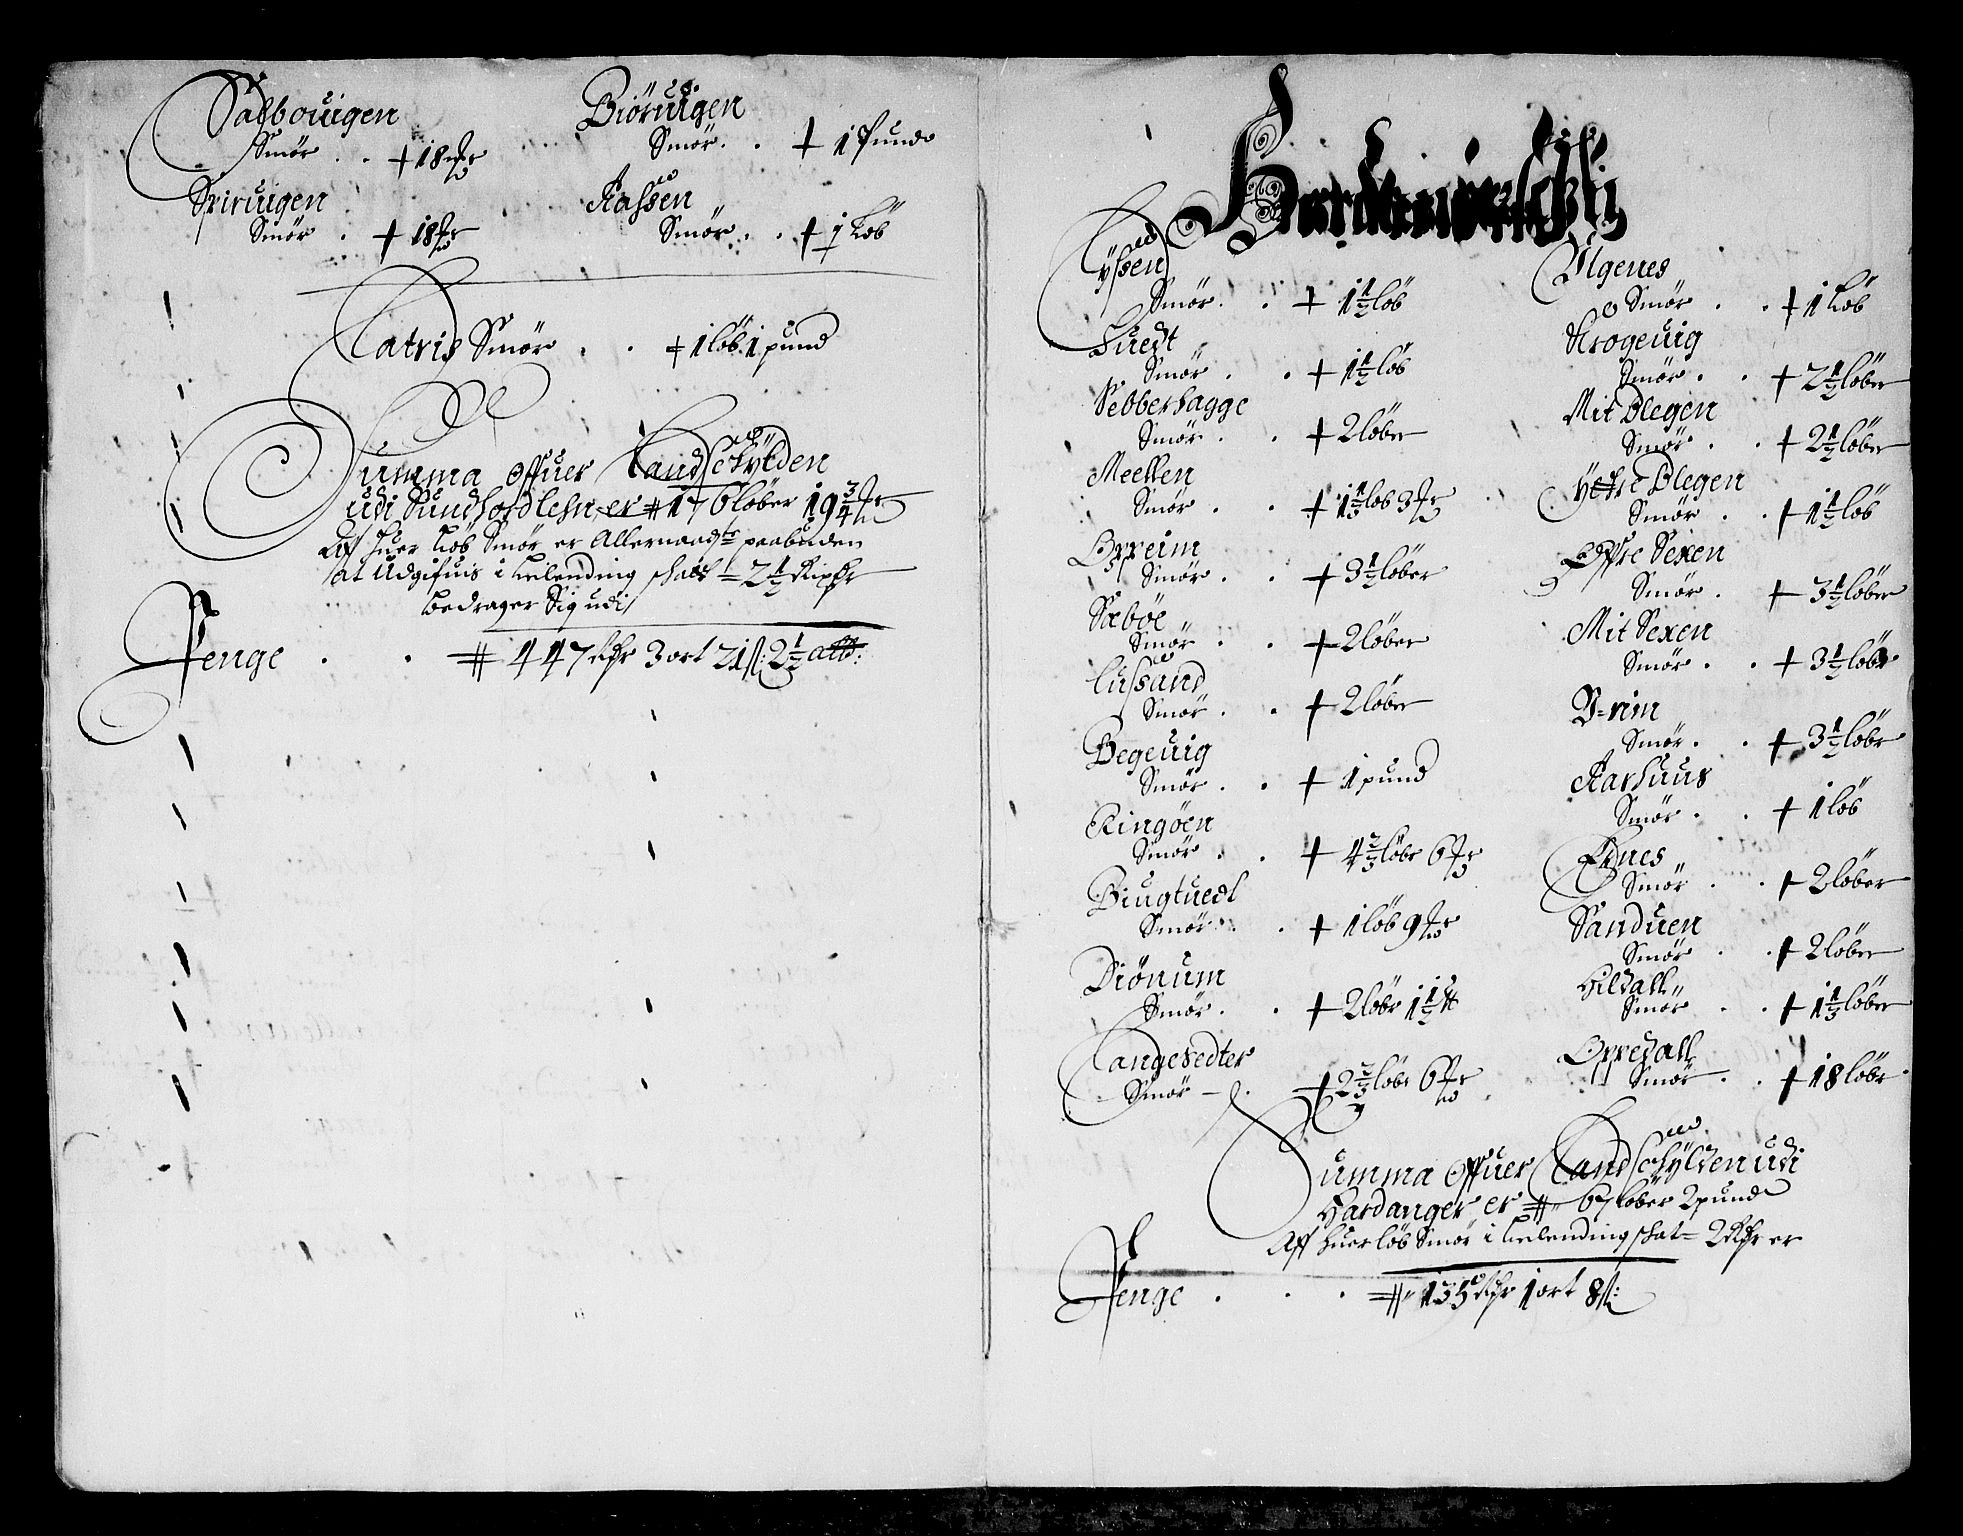 Salbouigen
Smör . . + 18 ℔r
Spiruigen
Smör . + 18 ℔r
Biöruigen
Smör . . + 1 Pund
Aassen
Smör . . + 1 Löb
Latris Smör . . + 1 löb 1 pund
Summa Offuer Landschÿlden
udi Sundhordlehn er # 176 löber 19 3/4 ℔r
Aff huer Löb Smör er Allernaadgte paabuden
at Udgifuis i Leelending schatt = 2 1/2 Rixdr
bedrager Sig udi
Penge . . # 447 Rdr 3 ort 21 ß: 2 1/2 alb:
Lÿssen
Smör . . + 1 1/2 löb
Tuedt
Smör . . + 1 1/2 löb
Sebberhagge
Smör . . + 2 löber
Meellen
Smör . . + 1 1/3 löb 3 ℔r
Oppeim
Smör . . + 3 1/2 löber
Sæböe
Smör . . + 2 löber
Lussand
Smör . . + 2 löber
Begeuig
Smör . . + 1 pund
Ringöen
Smör . . + 4 2/3 löbr 6 ℔r
Biugtuedt
Smör . . + 1 löb 9 ℔r
Diönum
Smör . . + 2 löbr 1 1/2 ℔
Langesedter
Smör – . + 2 2/3 löbr 6 ℔r
Ulgenes
Smör . . + 1 Löb
Krogeuig
Smör . . + 2 1/2 löber
Mit Blegen
Smör . . + 2 1/2 löber
Ÿttre Blegen
Smör . . + 1 1/2 löb
Öffre Sexen
Smör . + 3 1/2 löber
Mit Sexen
Smör . . + 3 1/2 löbr
Smör . . + 3 1/2 löbr
Aarhuus
Smör . . + 1 löb
Ednes
Smör . . + 2 löber
Sanduen
Smör . . + 2 löber
Hildall
Smör . . + 1 1/3 löber
Oppedall
Smör . . + 18 löbr
Summa Offuer Landschÿlden udi
Hardanger er # 67 Löber 2 pund
Aff huer löb Smör i Leelending schat = 2 Rdr er
Penge . . . # 135 Rdr 1 ort 8 ß: